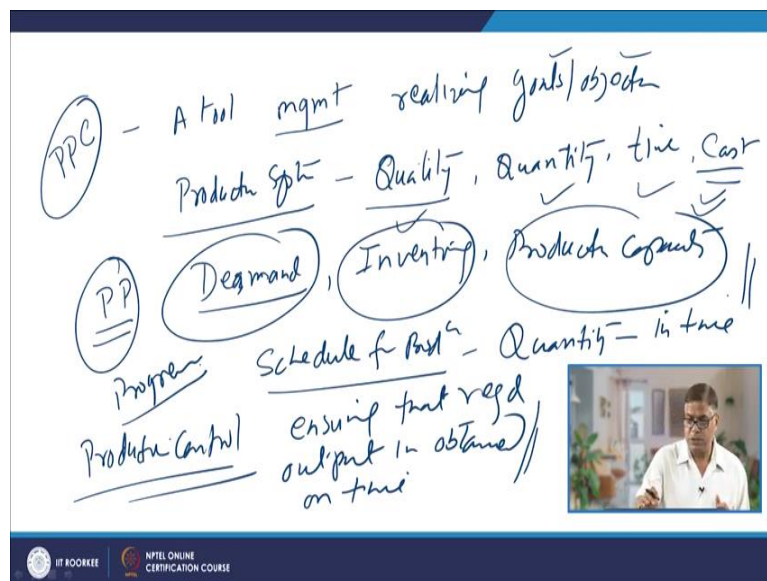 PPC - A tool mgmt realizing goals/objectn
Productn System - Quality, Quantity, time, Cost
PP Demand, Inventory, Productn Capacity
Program Schedule for Prodn - Quantity - in time
Productn Control ensuring that reqd
output in obtained
on time
IIT ROORKEE NPTEL ONLINE
CERTIFICATION COURSE